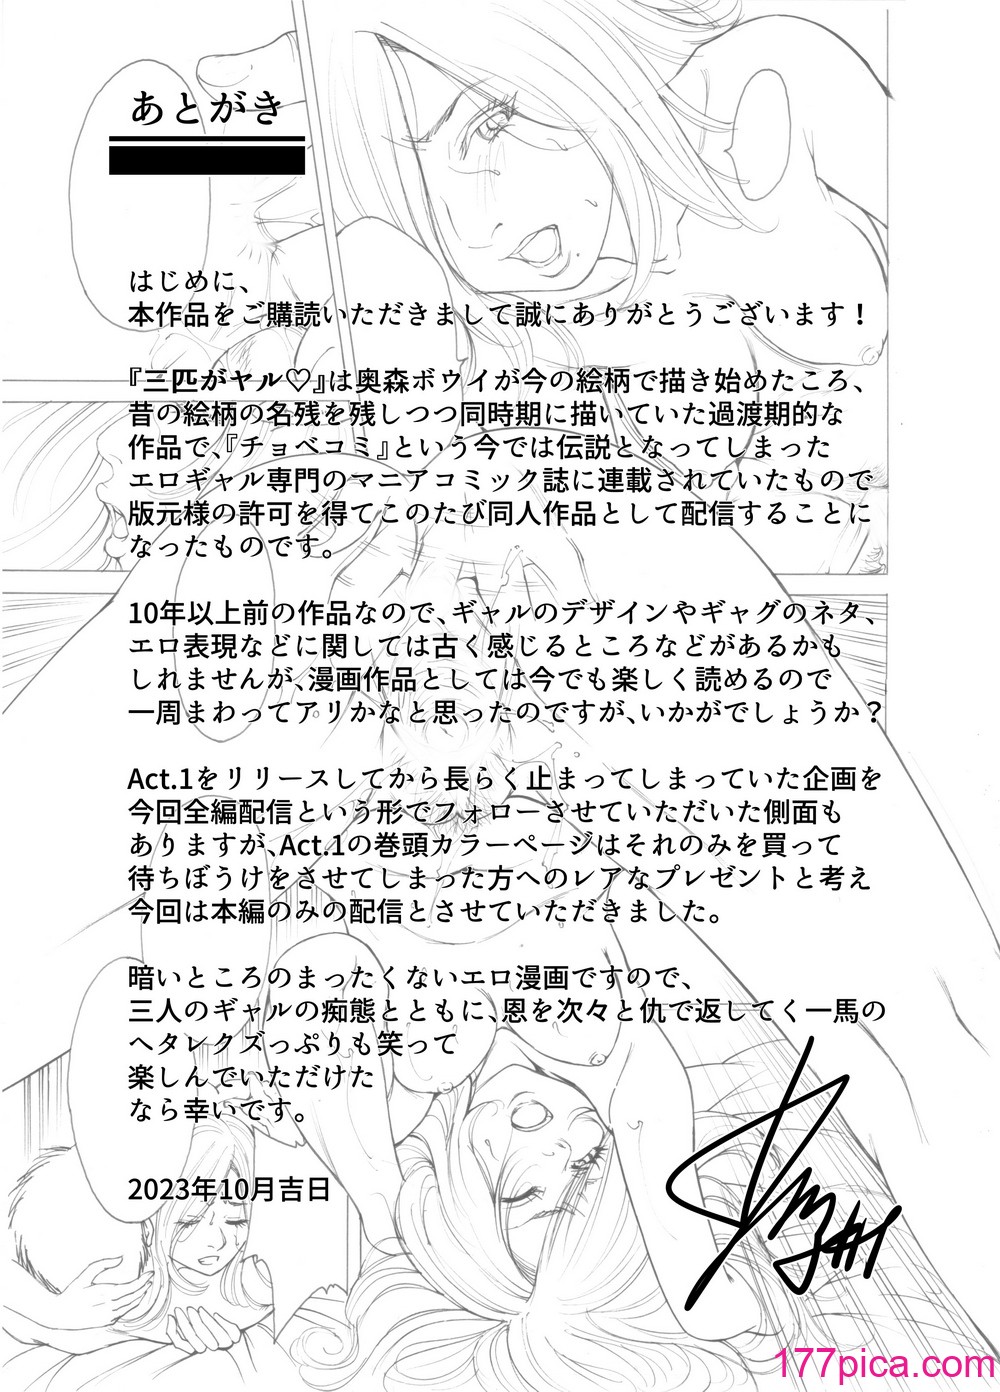 あとがき
はじめに、
本作品をご購読いただきまして誠にありがとうございます！
『三匹がヤル♡』は奥森ボウイが今の絵柄で描き始めたころ、
昔の絵柄の名残を残しつつ同時期に描いていた過渡期的な
作品で、『チョベコミ』という今では伝説となってしまった
エロギャル専門のマニアコミック誌に連載されていたもので
版元様の許可を得てこのたび同人作品として配信することに
なったものです。
10年以上前の作品なので、ギャルのデザインやギャグのネタ、
エロ表現などに関しては古く感じるところなどがあるかも
しれませんが、漫画作品としては今でも楽しく読めるので
一周まわってアリかなと思ったのですが、いかがでしょうか？
Act.1をリリースしてから長らく止まってしまっていた企画を
今回全編配信という形でフォローさせていただいた側面も
ありますが、Act.1の巻頭カラーページはそれのみを買って
待ちぼうけをさせてしまった方へのレアなプレゼントと考え
今回は本編のみの配信とさせていただきました。
暗いところのまったくないエロ漫画ですので、
三人のギャルの痴態とともに、恩を次々と仇で返してく一馬の
ヘタレクズっぷりも笑って
楽しんでいただけた
なら幸いです。
2023年10月吉日
177pica.com